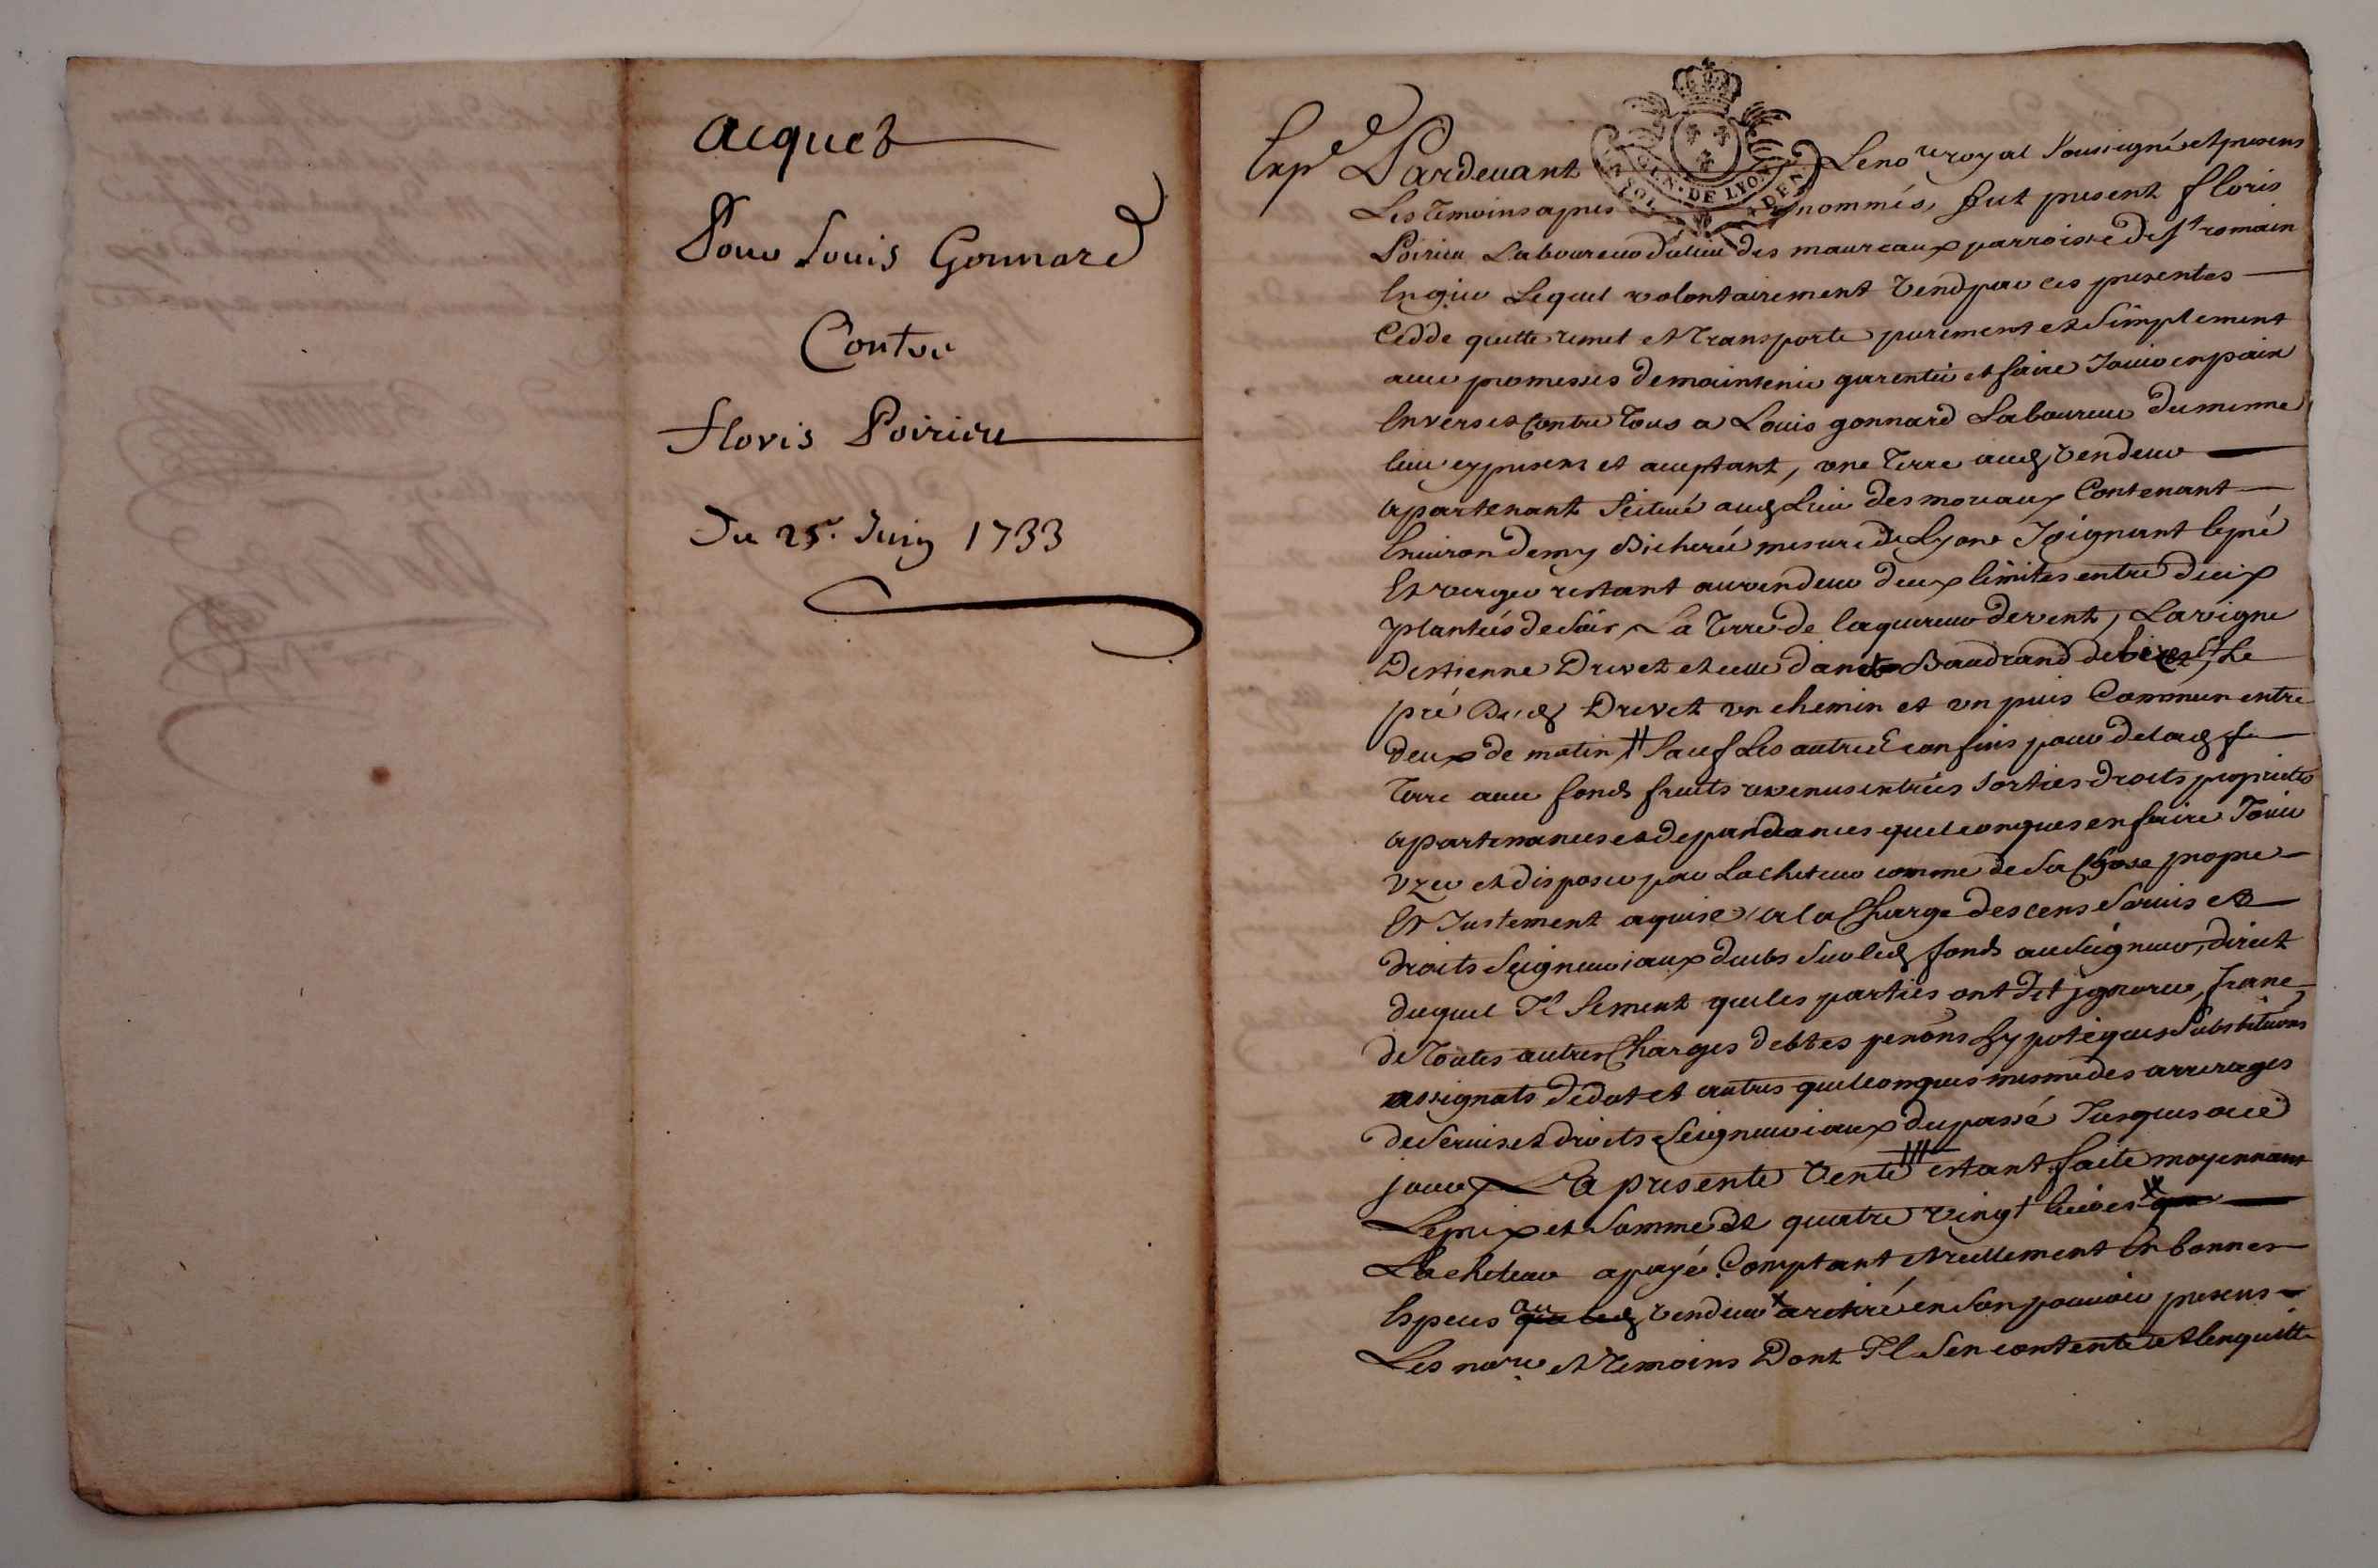 acquet
Pour Louis Gonnard
Contre
Floris Poirieu
Du 25. Juin 1733
GEN. DE LYON
Exp.é Pardevant Le no.re royal Soussigné et presens
Les temoins apres nommés, fut present floris
Poirieu Laboureur du lieu des maureaux parroisse de S.t romain
Engier Lequel volontairement vend par ces presentes
Cedde quitte remet et transporte purement et Simplement
avec promesses de maintenir garentir et faire Jouir en paix
Envers et Contre tous a Louis gonnard Laboureur du mesme
lieu cy present et aceptant, une terre aud vendeur
apartenant Scituée aud Lieu des moreaux Contenant
Environ demy Bicherée mesure de Lyon Joignant le pré
Et verger restant au vendeur deux limites entre deux
plantées de Soir, La terre de lacquereur de vent, La vigne
Destienne Drevet et celle Baudrand de bize, et Le
pré Dud Drevet un chemin et un puis Commun entre
deux de matin, Sauf Les autres confins pour de lad
Terre avec fonds fruits revenus entrées Sorties droits proprietés
apartenances et dependances quelconques en faire Jouir
Uzer et disposer par Lacheteur comme de Sa Chose propre
Et Justement aquise, a la Charge des cens Servis et
droits Seigneuriaux deubs Sur led fonds au Seigneur, direct
duquel Il Sement que les parties ont dit jgnorer, franc
de Toutes autres Charges debtes pensions hypoteques Substitutions
assignats de dot et autres quelconques mesme des arrerages
de Servis et droits Seigneuriaux du passé Jusques a ce
jour, La presente Vente estant faite moyennant
Le prix et Somme de quatre vingt livres que
Lacheteur a payé Comptant et reellement En bonnes
Especes au vendeur a retiré en Son pouvoir presens
Les no.re et Temoins Dont Il Sen contente et len quitte